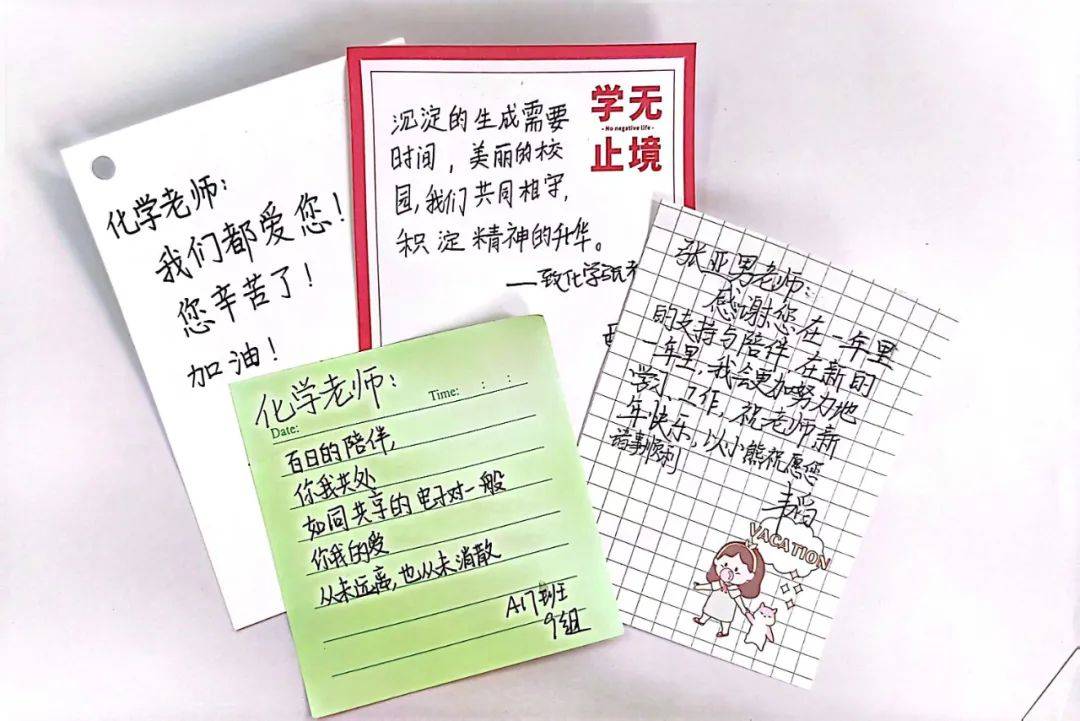 化学老师：
我们都爱您！
您辛苦了！
加油！
学无
- No negative life -
止境
沉淀的生成需要
时间，美丽的校
园，我们共同相守，
积淀精神的升华。
——致化学
化学老师：
Time: : :
Date:
百日的陪伴，
你我共处
如同共享的电子对一般
你我的爱
从未远离，也从未消散
A17班
9组
张亚男老师：
感谢您在一年里
的支持与陪伴 在新的
一年里，我会更加努力地
学习、工作，祝老师新
年快乐，以小熊祝愿您
诸事顺利
VACATION